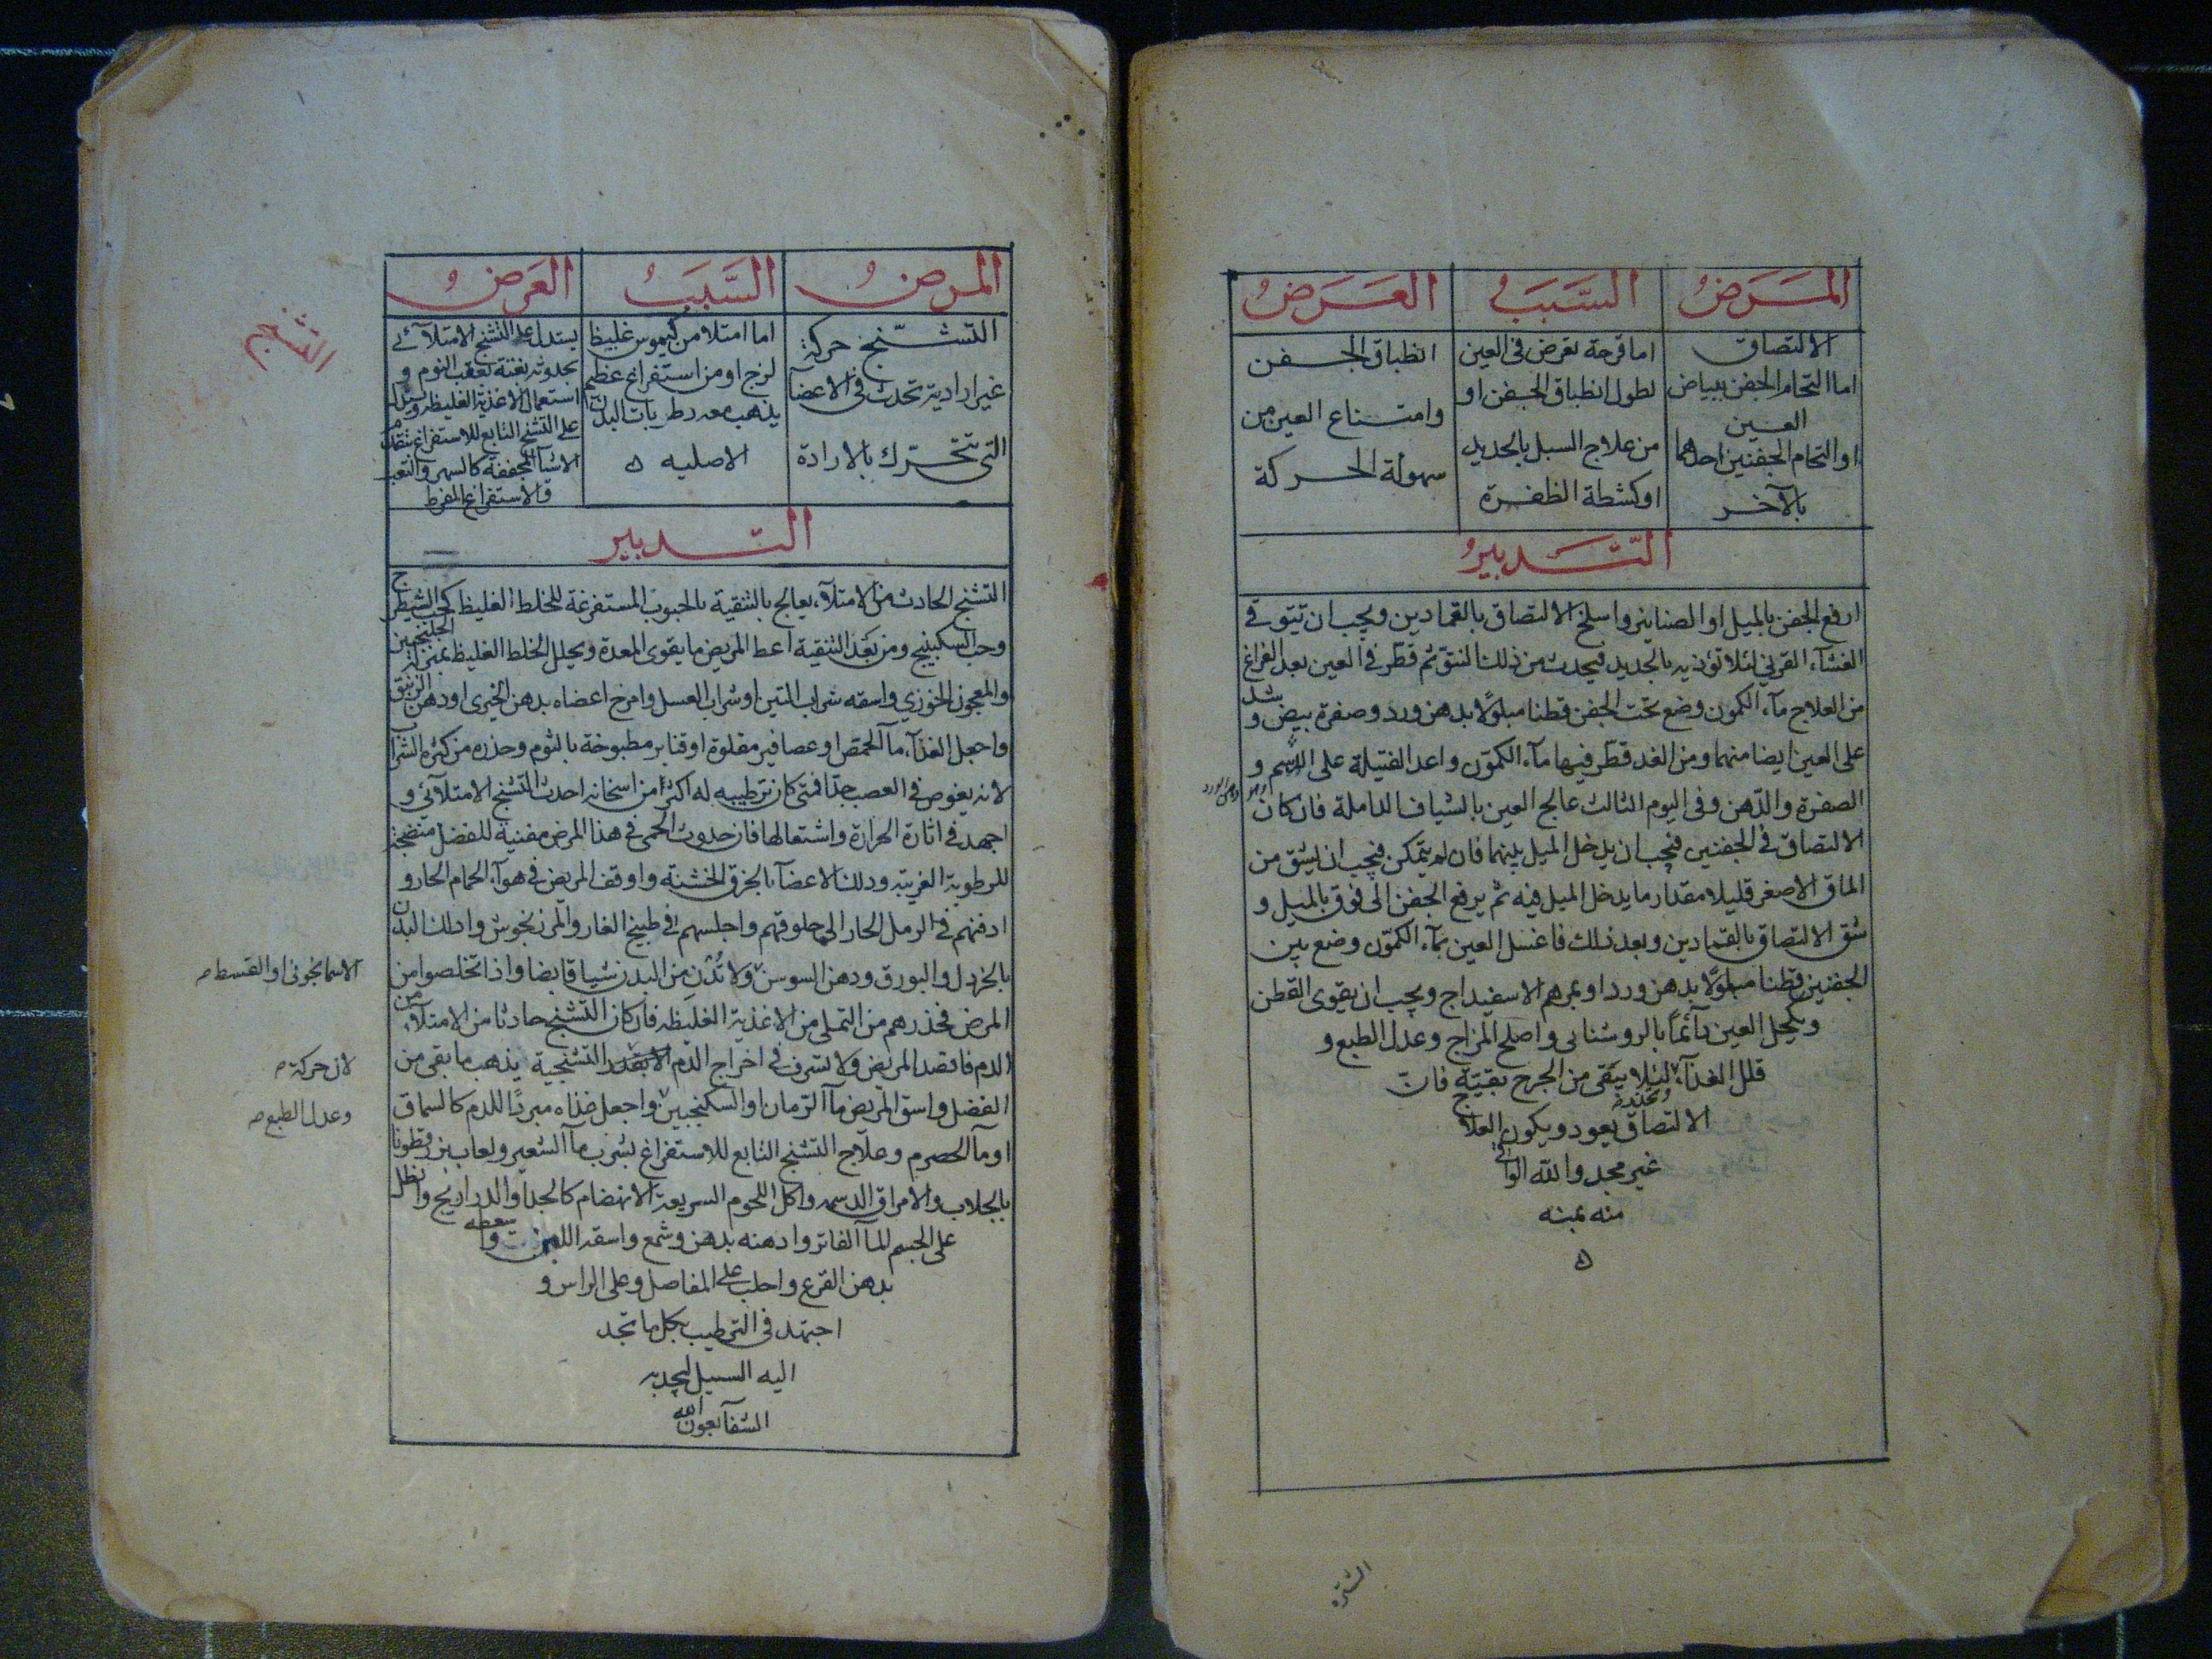 المَرَضُ
السَّبَبُ
العَرَضُ
الالتصاق
اما التحام الجفن ببياض
العين
او التحام الجفنين احدهما
بالآخر
اما قرحة تعرض فى العين
لطول انطباق الجفن او
من علاج السبل بالحديد
او كشطة الظفرة
انطباق الجفن
وامتناع العين من
سهولة الحركة
التَّدبيرُ
ارفع الجفن بالميل او الصنانير واسلخ الالتصاق بالقمادين ويجب ان تتوقى
الغشآء القرنى لئلا تؤذيه بالحديد فيحدث من ذلك النتوّ ثم قطّر فى العين بعد الفراغ
من العلاج مآء الكمون وضع تحت الجفن قطنا مبلولًا بدهن ورد وصفرة بيض وشد
على العين ايضا منهما ومن الغد قطّر فيها مآء الكمّون واعد الفتيلة على الرسم و
الصفرة والدّهن وفى اليوم الثالث عالج العين بالشياف الداملة فان كان
الالتصاق فى الجفنين فيجب ان يدخل الميل بينهما فان لم يتمكن فيجب ان يشق من
الماق الاصغر قليلا مقدار ما يدخل الميل فيه ثم يرفع الجفن الى فوق بالميل و
شق الالتصاق بالقمادين وبعد ذلك فاغسل العين بمآء الكمّون وضع بين
الجفنين قطنا مبلولًا بدهن ورد او بمرهم الاسفيداج ويجب ان يقوى القطن
ويكحل العين دآئمًا بالروشنابى واصلح المزاج وعدل الطبع و
قلل الغذآء لئلا يبقى من الجرح بقيّة فانّ
الالتصاق يعود ويكون العلاج
غير مجد والله الواقى
منه بمنه
ه
الشترة
المرضُ
السَّبَبُ
العَرضُ
التشنّج حركة
غير ارادية تحدث فى الاعضآ
التى تتحرّك بالارادة
اما امتلا من كيموس غليظ
لزج او من استفراغ عظيم
يذهب معه رطوبات البدن
الاصليه ه
يستدل على التشنج الامتلآئى
بحدوثه بغتة بعقب النوم و
استعمال الاغذية الغليظه ويستدل
على التشنج التابع للاستفراغ بتقدم
الاشيآ المجففة كالسهر والتعب
والاستفراغ المفرط
التشنج
التدبير
التشنج الحادث من الامتلآء يعالج بالتنقية بالحبوب المستفرغة للخلط الغليظ كحب الشيطرج
وحب السكبينج ومن بعد التنقية اعط المريض ما يقوى المعدة ويحلل الخلط الغليظ بمنزلة الجلنجبين
والمعجون الخوزي واسقه شراب التين او شراب العسل وامرخ اعضاه بدهن الخيرى او دهن الزنبق
واجعل الغذآء مآ الحمص او عصافير مقلوة او قنابر مطبوخة بالثوم وحذره من كثرة الشراب
لانه يغوص فى العصب جدّا فمتى كان ترطيبه له اكثر من اسخانه احدث التشنج الامتلآئى و
اجهد فى اثارة الحرارة واشتعالها فان حدوث الحمى فى هذا المرض مفنية للفضل منضجة
للرطوبة الغريبة ودلك الاعضآ بالخرق الخشنة واوقف المريض فى هوآء الحمام الحار و
ادفنهم فى الرمل الحار الى حلوقهم واجلسهم فى طبيخ الغار والمرزنجوش وادلك البدن
بالخردل والبورق ودهن السوسن ولا تُدْنِ من البدن شيا قابضا واذا تخلصوا من
الاسمانجونى او القسط صح
المرض فحذرهم من التملى من الاغذية الغليظه فان كان التشنج حادثا من الامتلآء من
الدم فافصد المريض ولا تسرف فى اخراج الدّم لان حركة التشنجية يذهب ما بقى من
لان حركة صح
الفضل واسق المريض مآ الرّمان او السكنجبين واجعل غذاه مبردًا للدم كالسماق
وعدل الطبع صح
او مآ الحصرم وعلاج التشنج التابع للاستفراغ بشرب مآ الشعير ولعاب بزرقطونا
بالجلاب والامراق الدسمه واكل اللحوم السريعة الانهضام كالجدا والدراريج وانطل
على الجسم المآ الفاتر وادهنه بدهن وشمع واسقه اللبن وأسعطه
بدهن القرع واحلب على المفاصل وعلى الراس و
اجتهد فى الترطيب بكل ما تجد
اليه السبيل ليجد به
الشفآ بعون الله